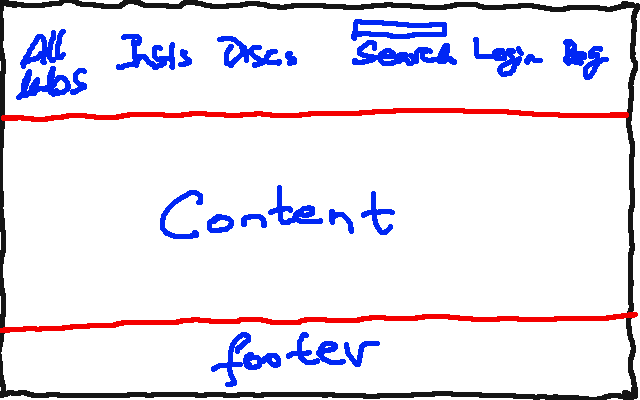 All Insts Discs Search Login Reg
Labs
Content
footer